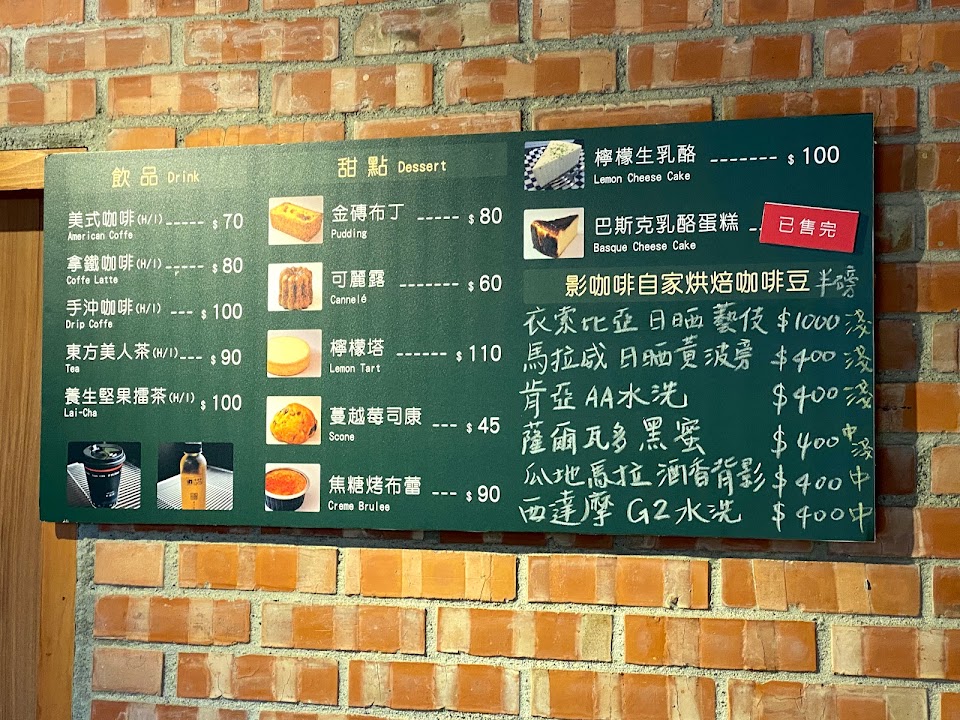 飲品 Drink
美式咖啡(H/I)----- $ 70
American Coffe
拿鐵咖啡(H/I)----- $ 80
Coffe Latte
手沖咖啡(H/I) --- $ 100
Drip Coffe
東方美人茶(H/I)--- $ 90
Tea
養生堅果擂茶(H/I) $ 100
Lai-Cha
甜點 Dessert
金磚布丁 ----- $ 80
Pudding
可麗露 ------- $ 60
Cannelé
檸檬塔 ------ $ 110
Lemon Tart
蔓越莓司康 --- $ 45
Scone
焦糖烤布蕾 --- $ 90
Creme Brulee
檸檬生乳酪 ------- $ 100
Lemon Cheese Cake
巴斯克乳酪蛋糕 --
Basque Cheese Cake
已售完
影咖啡自家烘焙咖啡豆 半磅
衣索比亞 日晒 藝伎 $1000 淺
馬拉威 日晒黃波旁 $400 淺
肯亞 AA水洗 $400 淺
薩爾瓦多 黑蜜 $400 中淺
瓜地馬拉 酒香背影 $400 中
西達摩 G2 水洗 $400 中